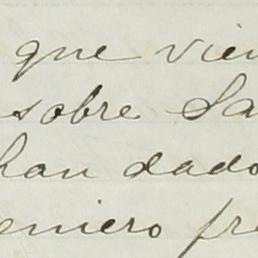 que vien
sobre Sa
han dado
eniero fre